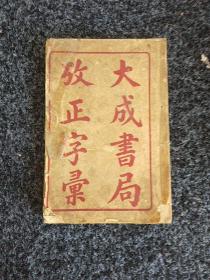 大成書局
攷正字彙